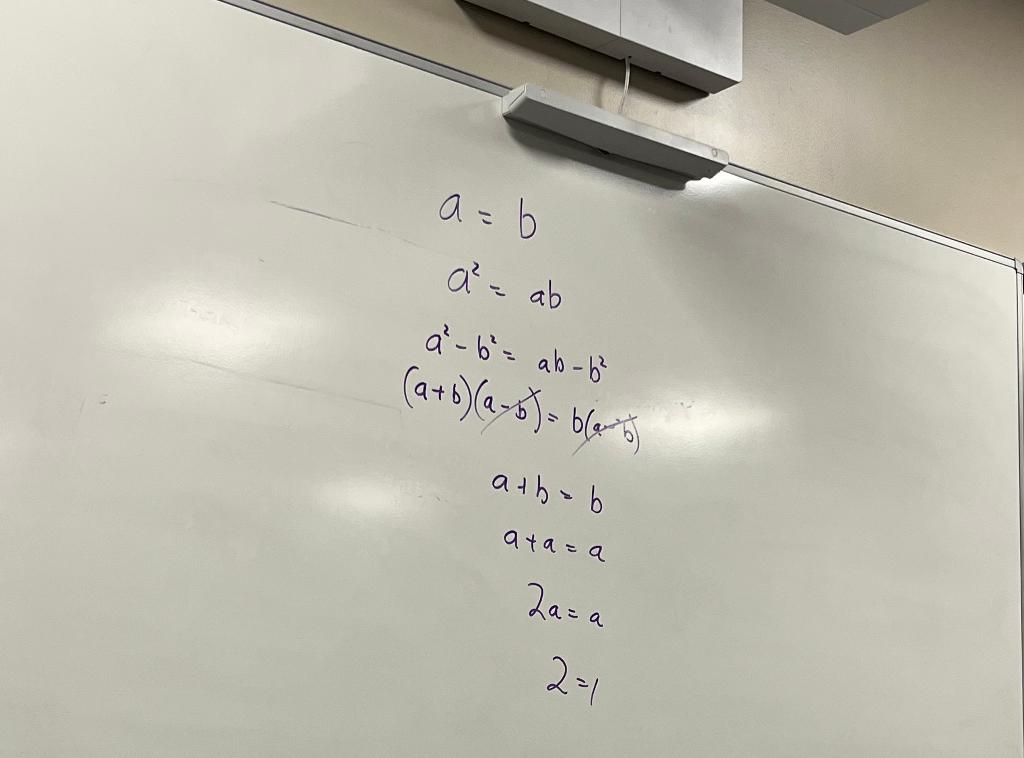 a = b
a² = ab
a² - b² = ab - b²
(a+b)(a-b) = b(a-b)
a+b = b
a+a = a
2a = a
2 = 1